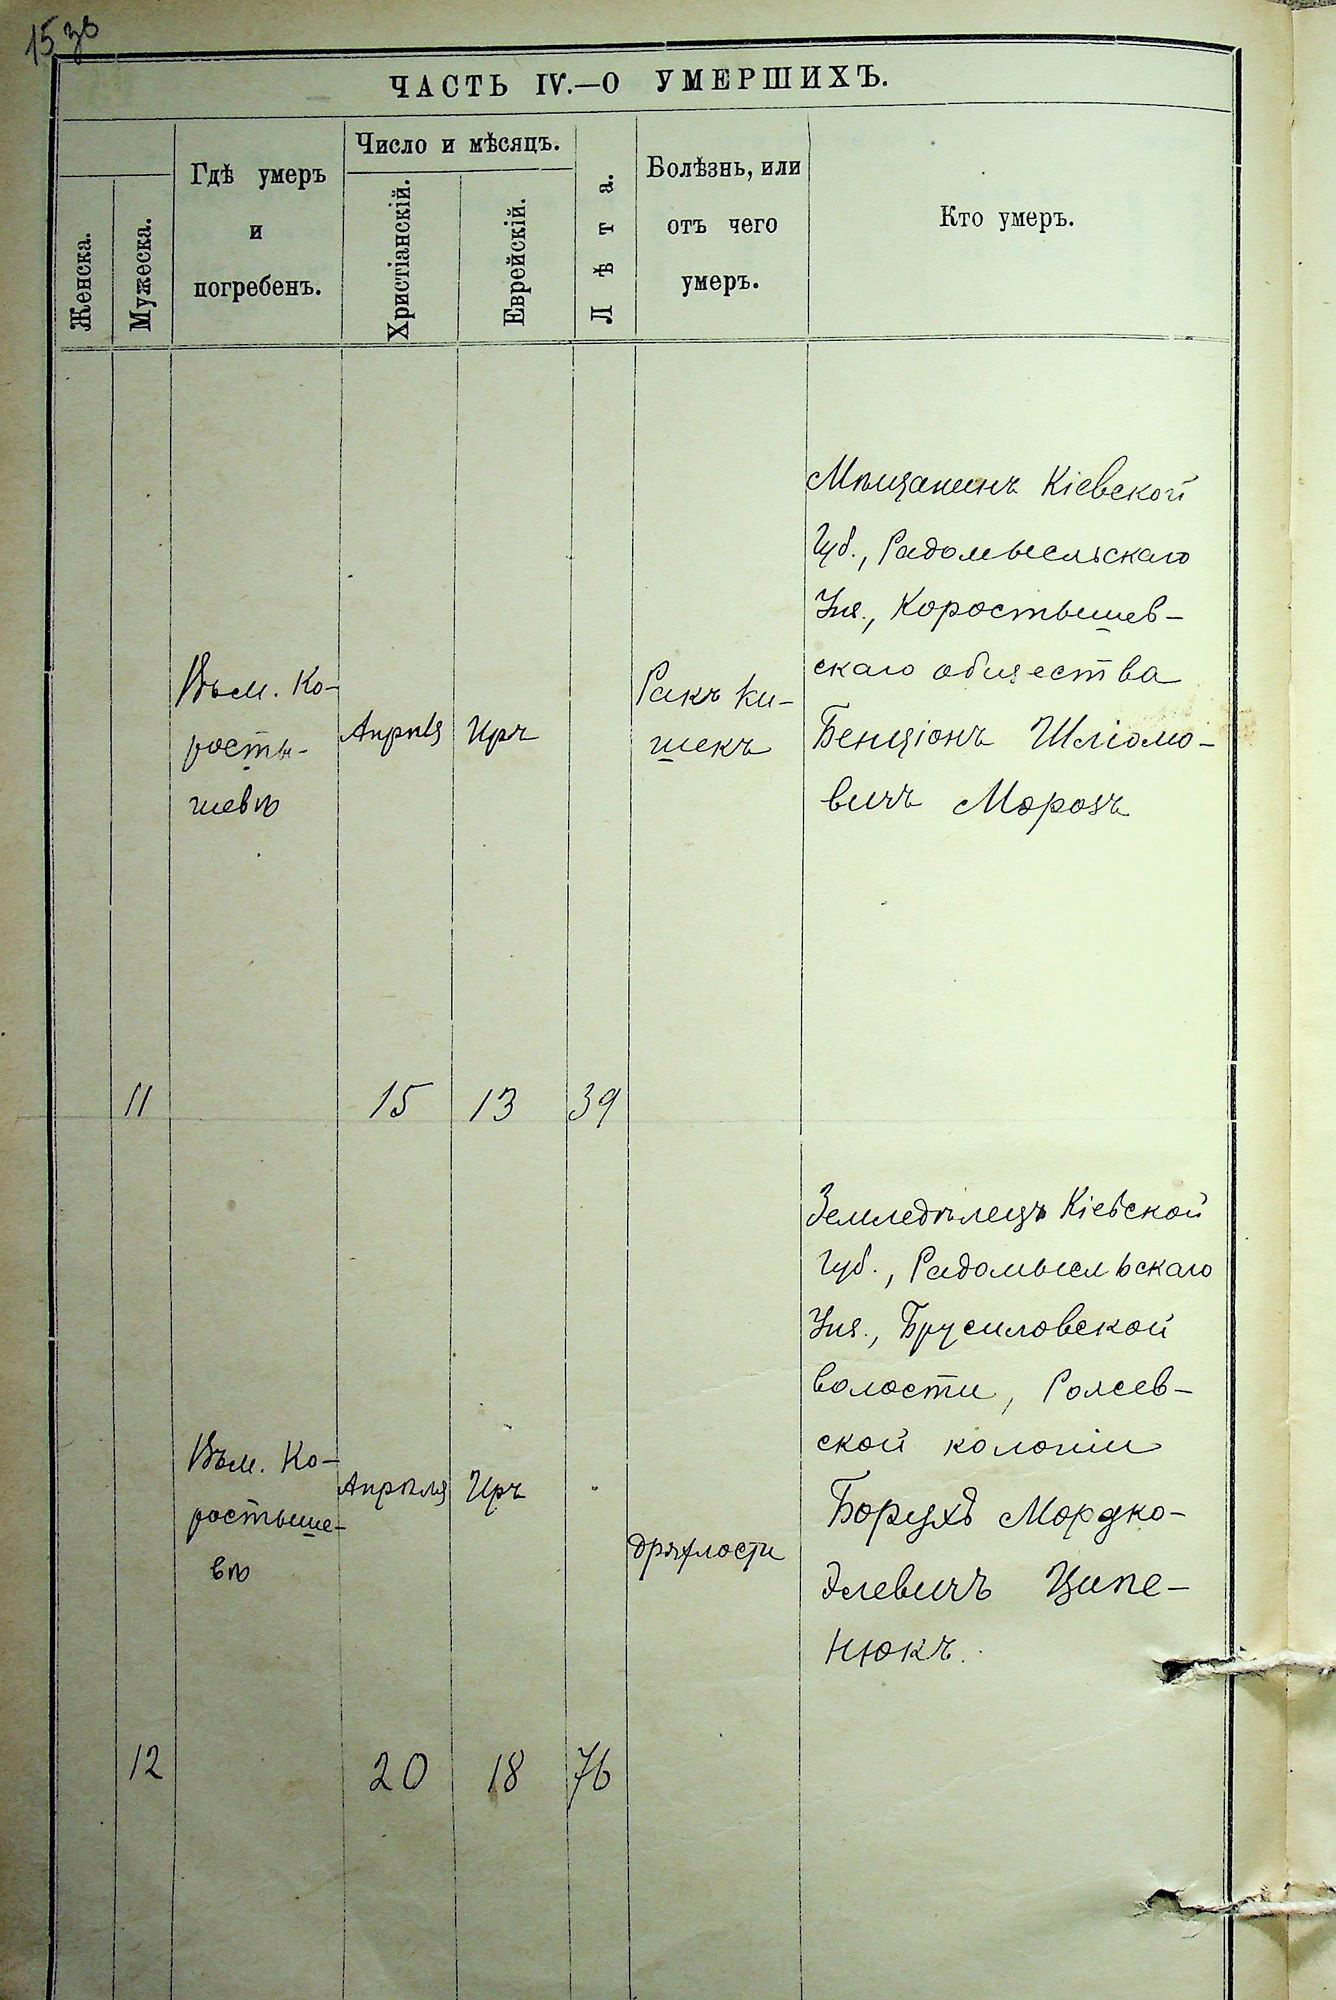 15 зо
ЧАСТЬ IV.—О УМЕРШИХЪ.
Женска.
Мужеска.
Гдѣ умеръ
и
погребенъ.
Число и мѣсяцъ.
Христіанскій.
Еврейскій.
Лѣта.
Болѣзнь, или
отъ чего
умеръ.
Кто умеръ.
11
Въ м. Ко-
росты-
шевѣ
Апрѣля
15
Иръ
13
39
Ракъ ки-
шекъ
Мѣщанинъ Кіевской
Губ., Радомысльскаго
Уѣз., Коростышев-
скаго общества
Бенціонъ Шліомо-
вичъ Морозъ
12
Въ м. Ко-
ростыше-
вѣ
Апрѣля
20
Иръ
18
76
дряхлости
Земледѣлецъ Кіевской
Губ., Радомысльскаго
Уѣз., Брусиловской
волости,
ской колоніи
Борухъ Мордко-
Элевичъ Ципе-
нюкъ.